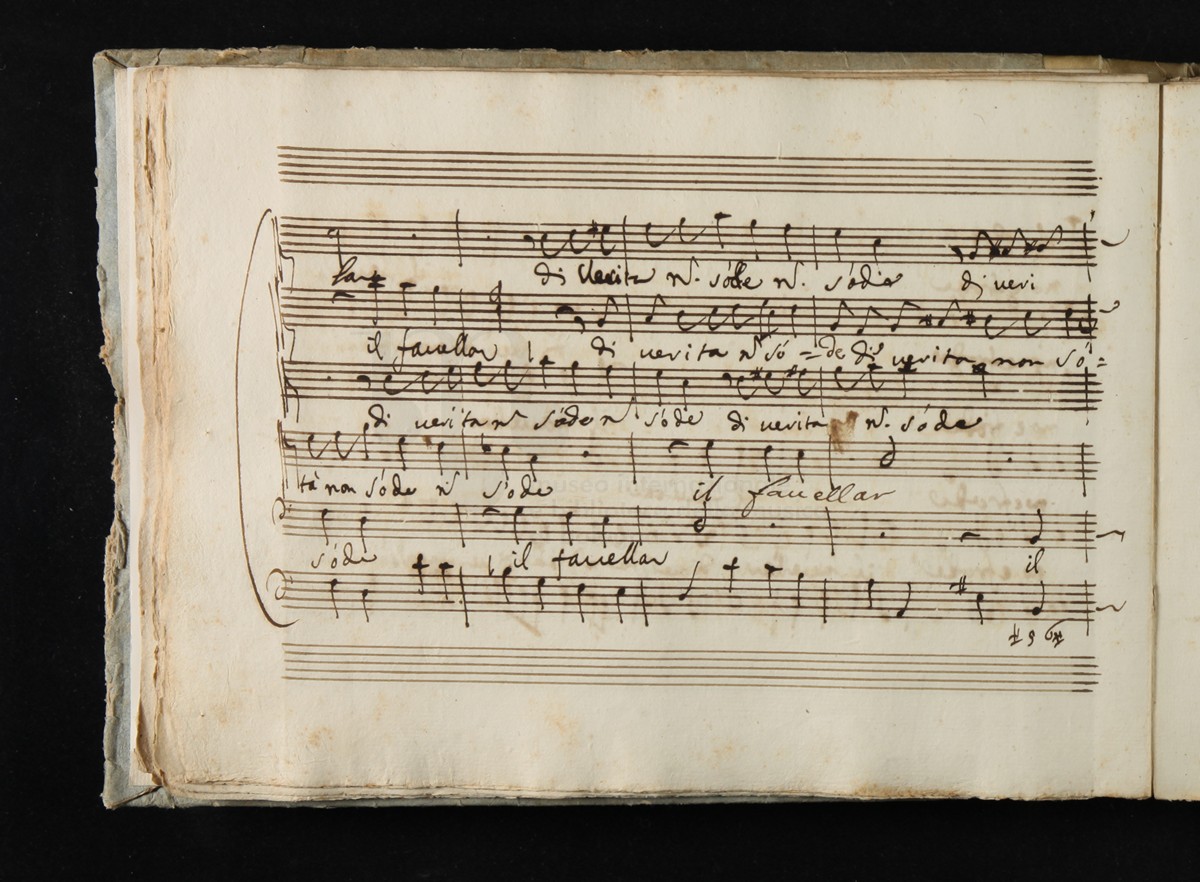 lar di verita n. s'ode n. s'ode di veri
il favellar di verita n. s'ó = de di verita non s'ó =
di verita n. s'ode n. s'ode di verita n. s'ode
tà non s'ode n. s'ode il favellar
s'ode il favellar il
museo internazionale